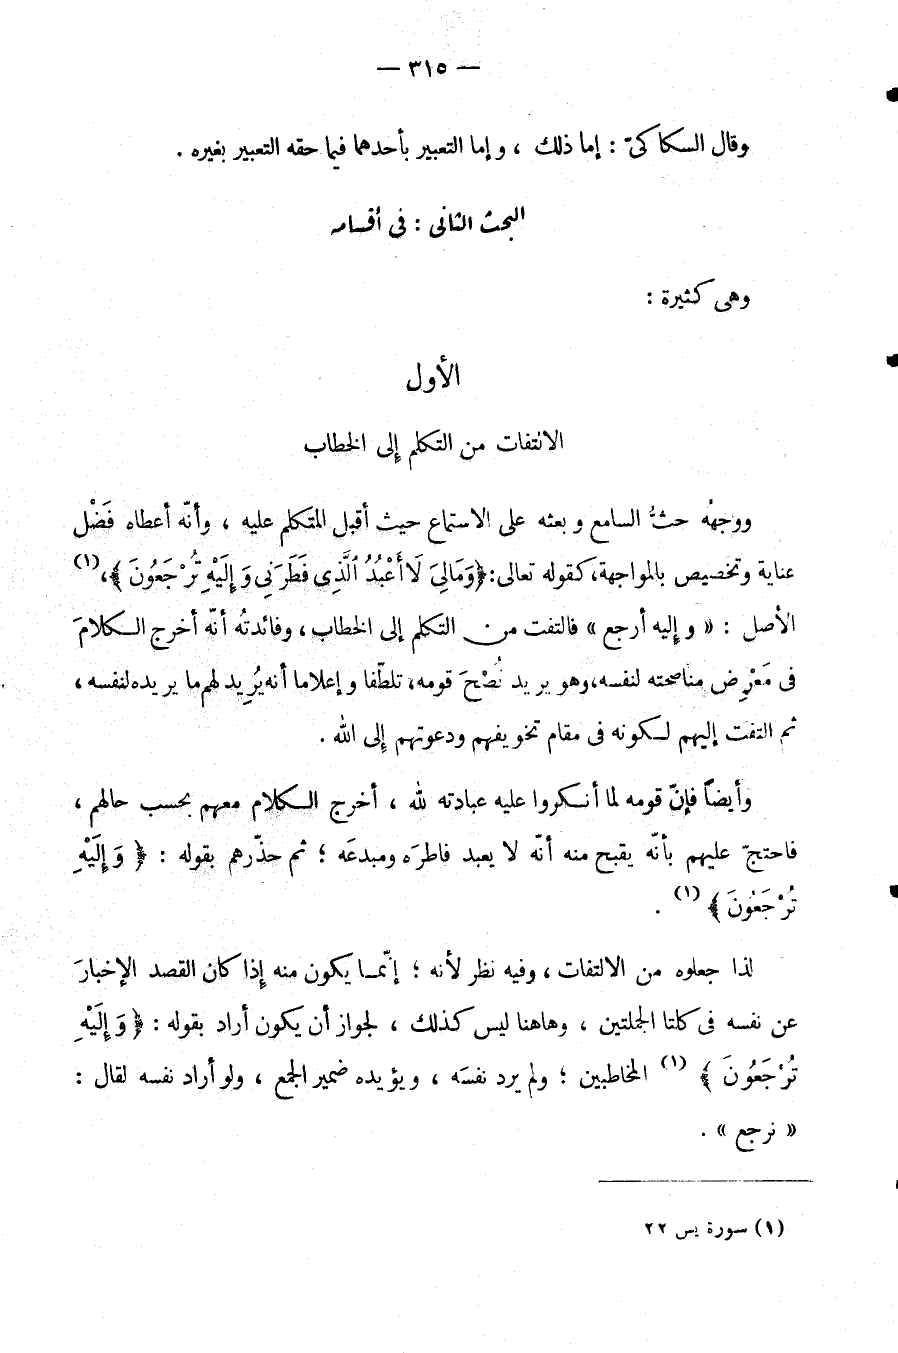 — ٣١٥ —
وقال السكاكىّ : إما ذلك ، وإما التعبير بأحدهما فيما حقه التعبير بغيره .
البحث الثانى : فى أقسامه
وهى كثيرة :
الأول
الالتفات من التكلم إلى الخطاب
ووجهُه حثُّ السامع وبعثه على الاستماع حيث أقبل المتكلم عليه ، وأنّه أعطاه فَضْل
عناية وتخصيص بالمواجهة، كقوله تعالى: ﴿وَمَالِىَ لَا أَعْبُدُ ٱلَّذِى فَطَرَنِى وَإِلَيْهِ تُرْجَعُونَ﴾،(١)
الأصل : « وإليه أرجع » فالتفت من التكلم إلى الخطاب ، وفائدتُه أنّه أخرج الكلامَ
فى مَعْرِض مناصحته لنفسه، وهو يريد نُصْحَ قومه، تلطّفا وإعلاما أنه يُرِيد لهم ما يريده لنفسه ،
ثم التفت إليهم لكونه فى مقام تخويفهم ودعوتهم إلى الله .
وأيضاً فإنّ قومه لما أنكروا عليه عبادته لله ، أخرج الكلام معهم بحسب حالهم ،
فاحتجّ عليهم بأنّه يقبح منه أنّه لا يعبد فاطرَه ومبدعَه ؛ ثم حذّرهم بقوله : ﴿ وَإِلَيْهِ
تُرْجَعُونَ ﴾ (١) .
لذا جعلوه من الالتفات ، وفيه نظر لأنه ؛ إنّما يكون منه إذا كان القصد الإخبارَ
عن نفسه فى كلتا الجملتين ، وهاهنا ليس كذلك ، لجواز أن يكون أراد بقوله : ﴿ وَإِلَيْهِ
تُرْجَعُونَ ﴾ (١) المخاطبين ؛ ولم يرد نفسَه ، ويؤيده ضمير الجمع ، ولو أراد نفسه لقال :
« نرجع » .
(١) سورة يس ٢٢